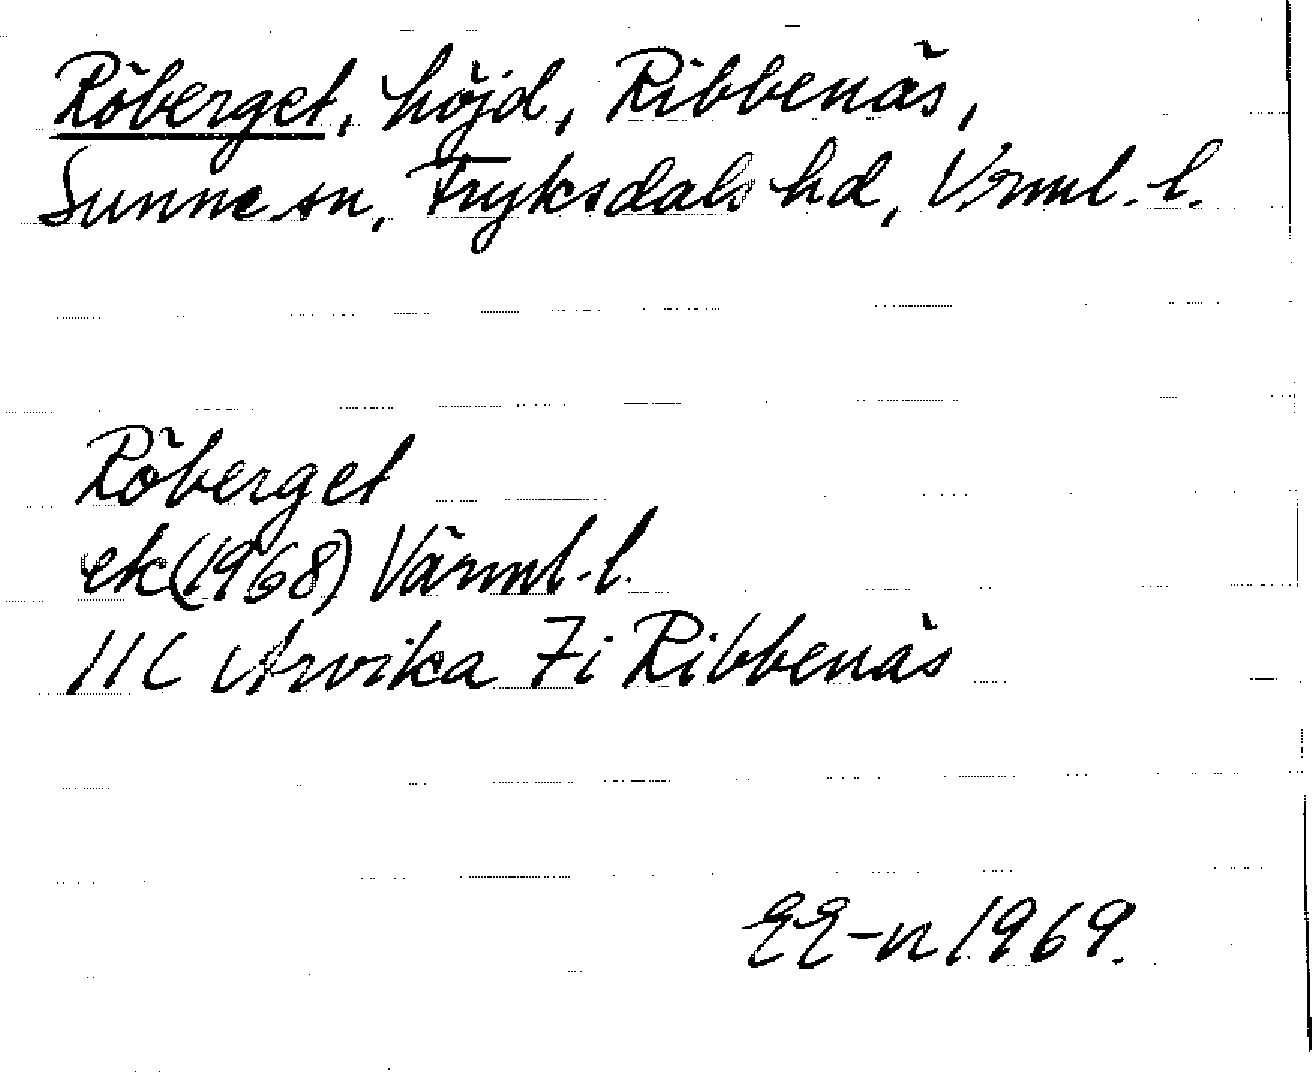 Röberget, höjd, Ribbenäs,
Sunne sn, Fryksdals hd, Vrml. l.
Röberget
ek (1968) Värml. l.
11C Arvika 7i Ribbenäs
EE-n 1969.